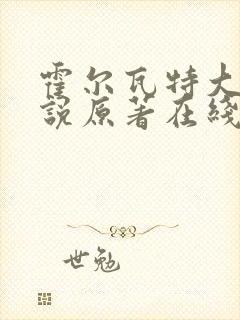 霍尔瓦特大
說原著在綫
世勉